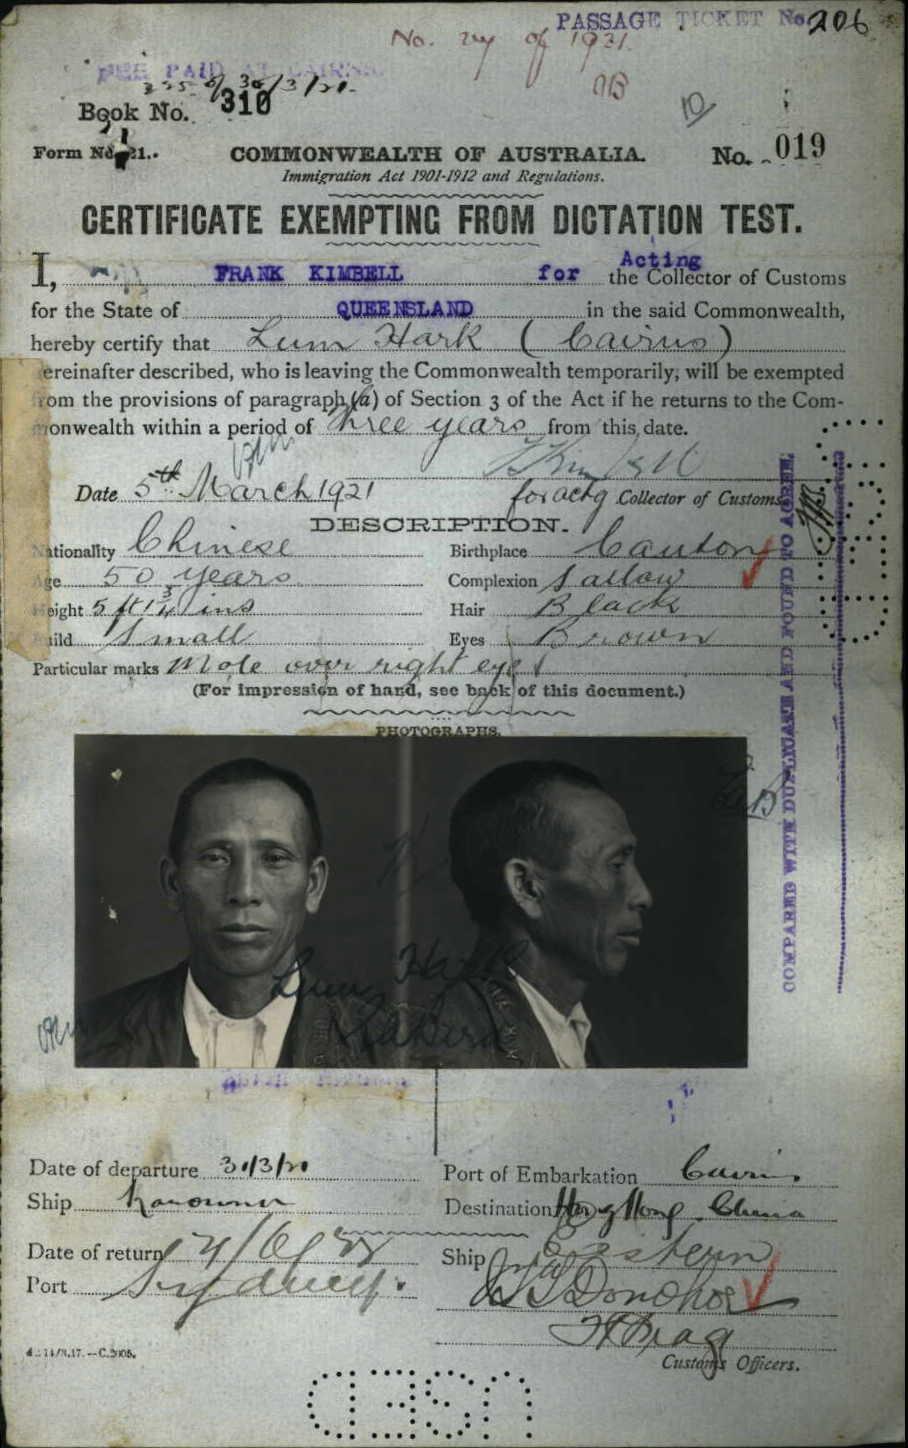 PASSAGE TICKET No. 206
No. 24 of 1921.
FEE PAID AT CAIRNS
30/3/21.
Book No. 310
Form No. 21.
COMMONWEALTH OF AUSTRALIA.
No. 019
Immigration Act 1901-1912 and Regulations.
CERTIFICATE EXEMPTING FROM DICTATION TEST.
Acting
I, FRANK KIMBELL for the Collector of Customs
for the State of QUEENSLAND in the said Commonwealth,
hereby certify that Lum Hark (Cairns)
ereinafter described, who is leaving the Commonwealth temporarily, will be exempted
om the provisions of paragraph (a) of Section 3 of the Act if he returns to the Com-
monwealth within a period of three years from this date.
F Kimbell
Date 5th March 1921 for actg Collector of Customs
DESCRIPTION.
Nationality Chinese Birthplace Canton
Age 50 years Complexion Sallow
Height 5 ft 1 3/4 ins Hair Black
uild Small Eyes Brown
Particular marks Mole over right eye
(For impression of hand, see back of this document.)
PHOTOGRAPHS.
Lum Hark
COMPARED WITH DUPLICATE AND FOUND TO AGREE.
Date of departure 30/3/21 Port of Embarkation Cairns
Ship Destination Hong Kong China
Date of return Ship Eastern
Port Sydney. Donohoe
Customs Officers.
USED